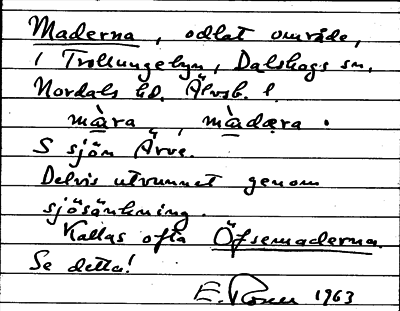 Maderna, odlat område,
i Trollungebyn, Dalskogs sn,
Nordals hd. Älvsb. l.
màra, màdæra.
S sjön Ärve.
Delvis utvunnet genom
sjösänkning.
Kallas ofta Öfsemaderna.
Se detta!
E. 1963